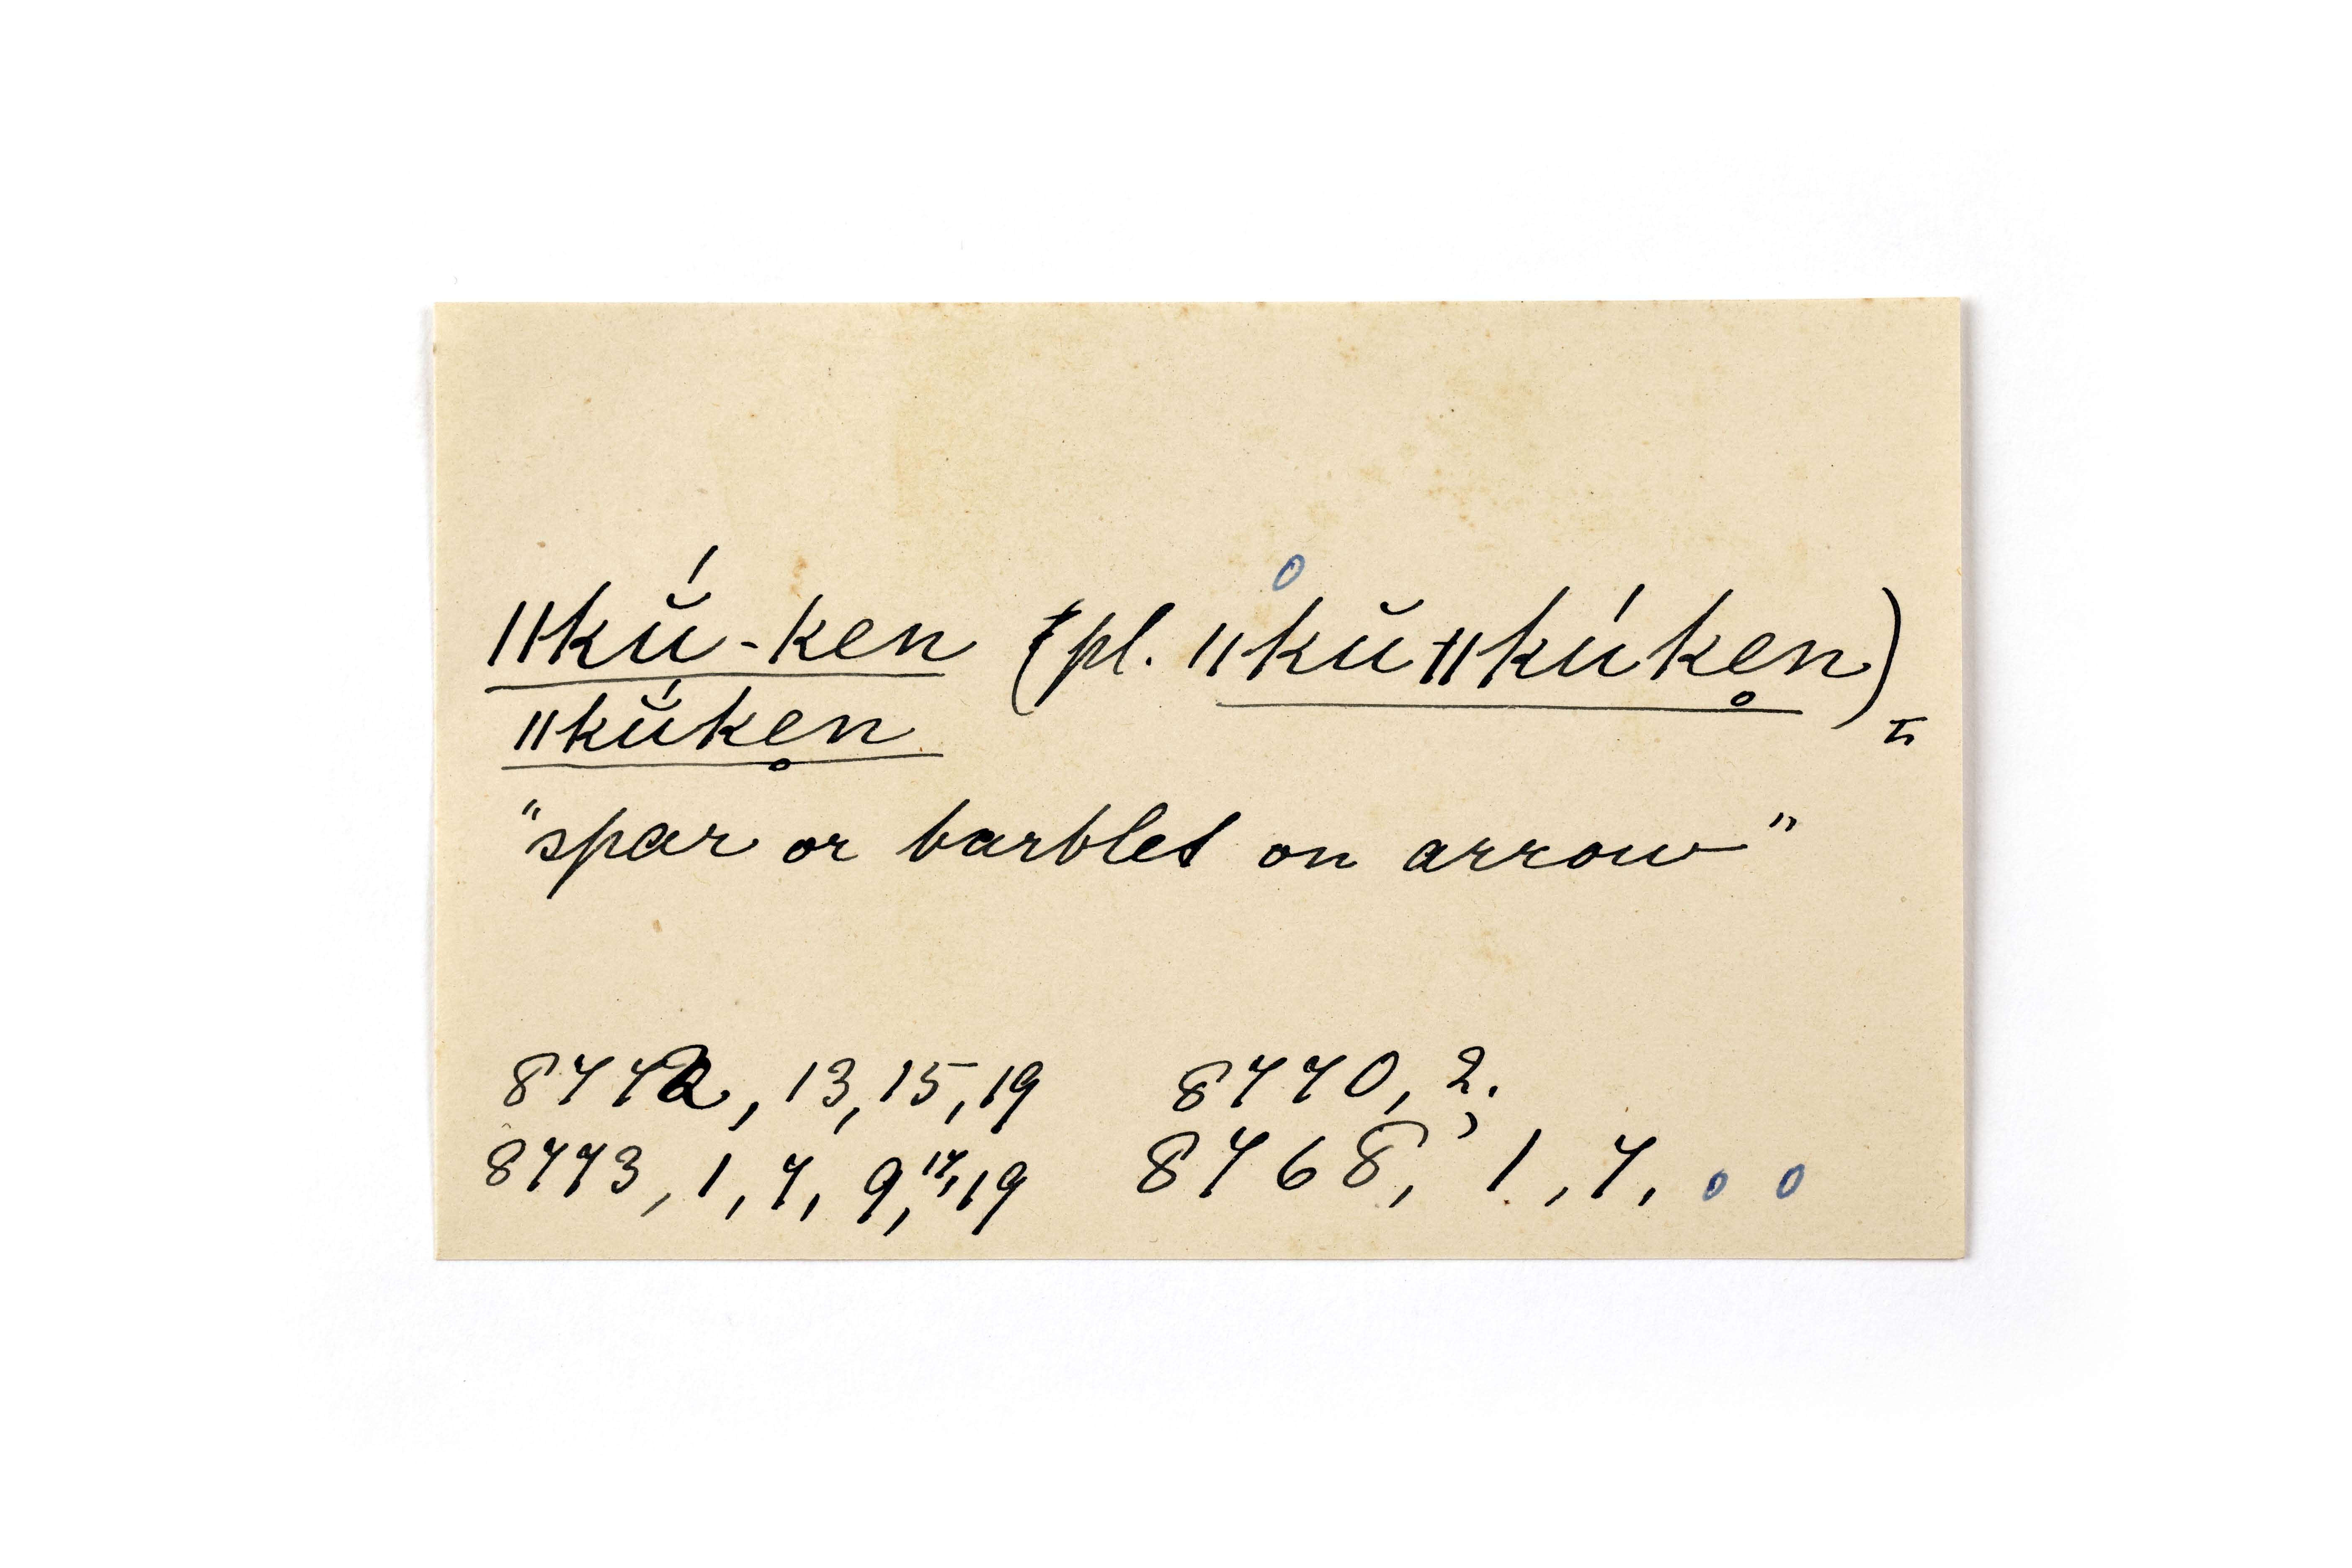 ǁkŭ́-ken (pl. ǁkŭǁkúke̥n)
ǁkŭ́ke̥n
"spar or barblet on arrow"
8772, 13, 15, 19 8770, 2.
8773, 1, 7, 9, 17, 19 8768, 1, 7,